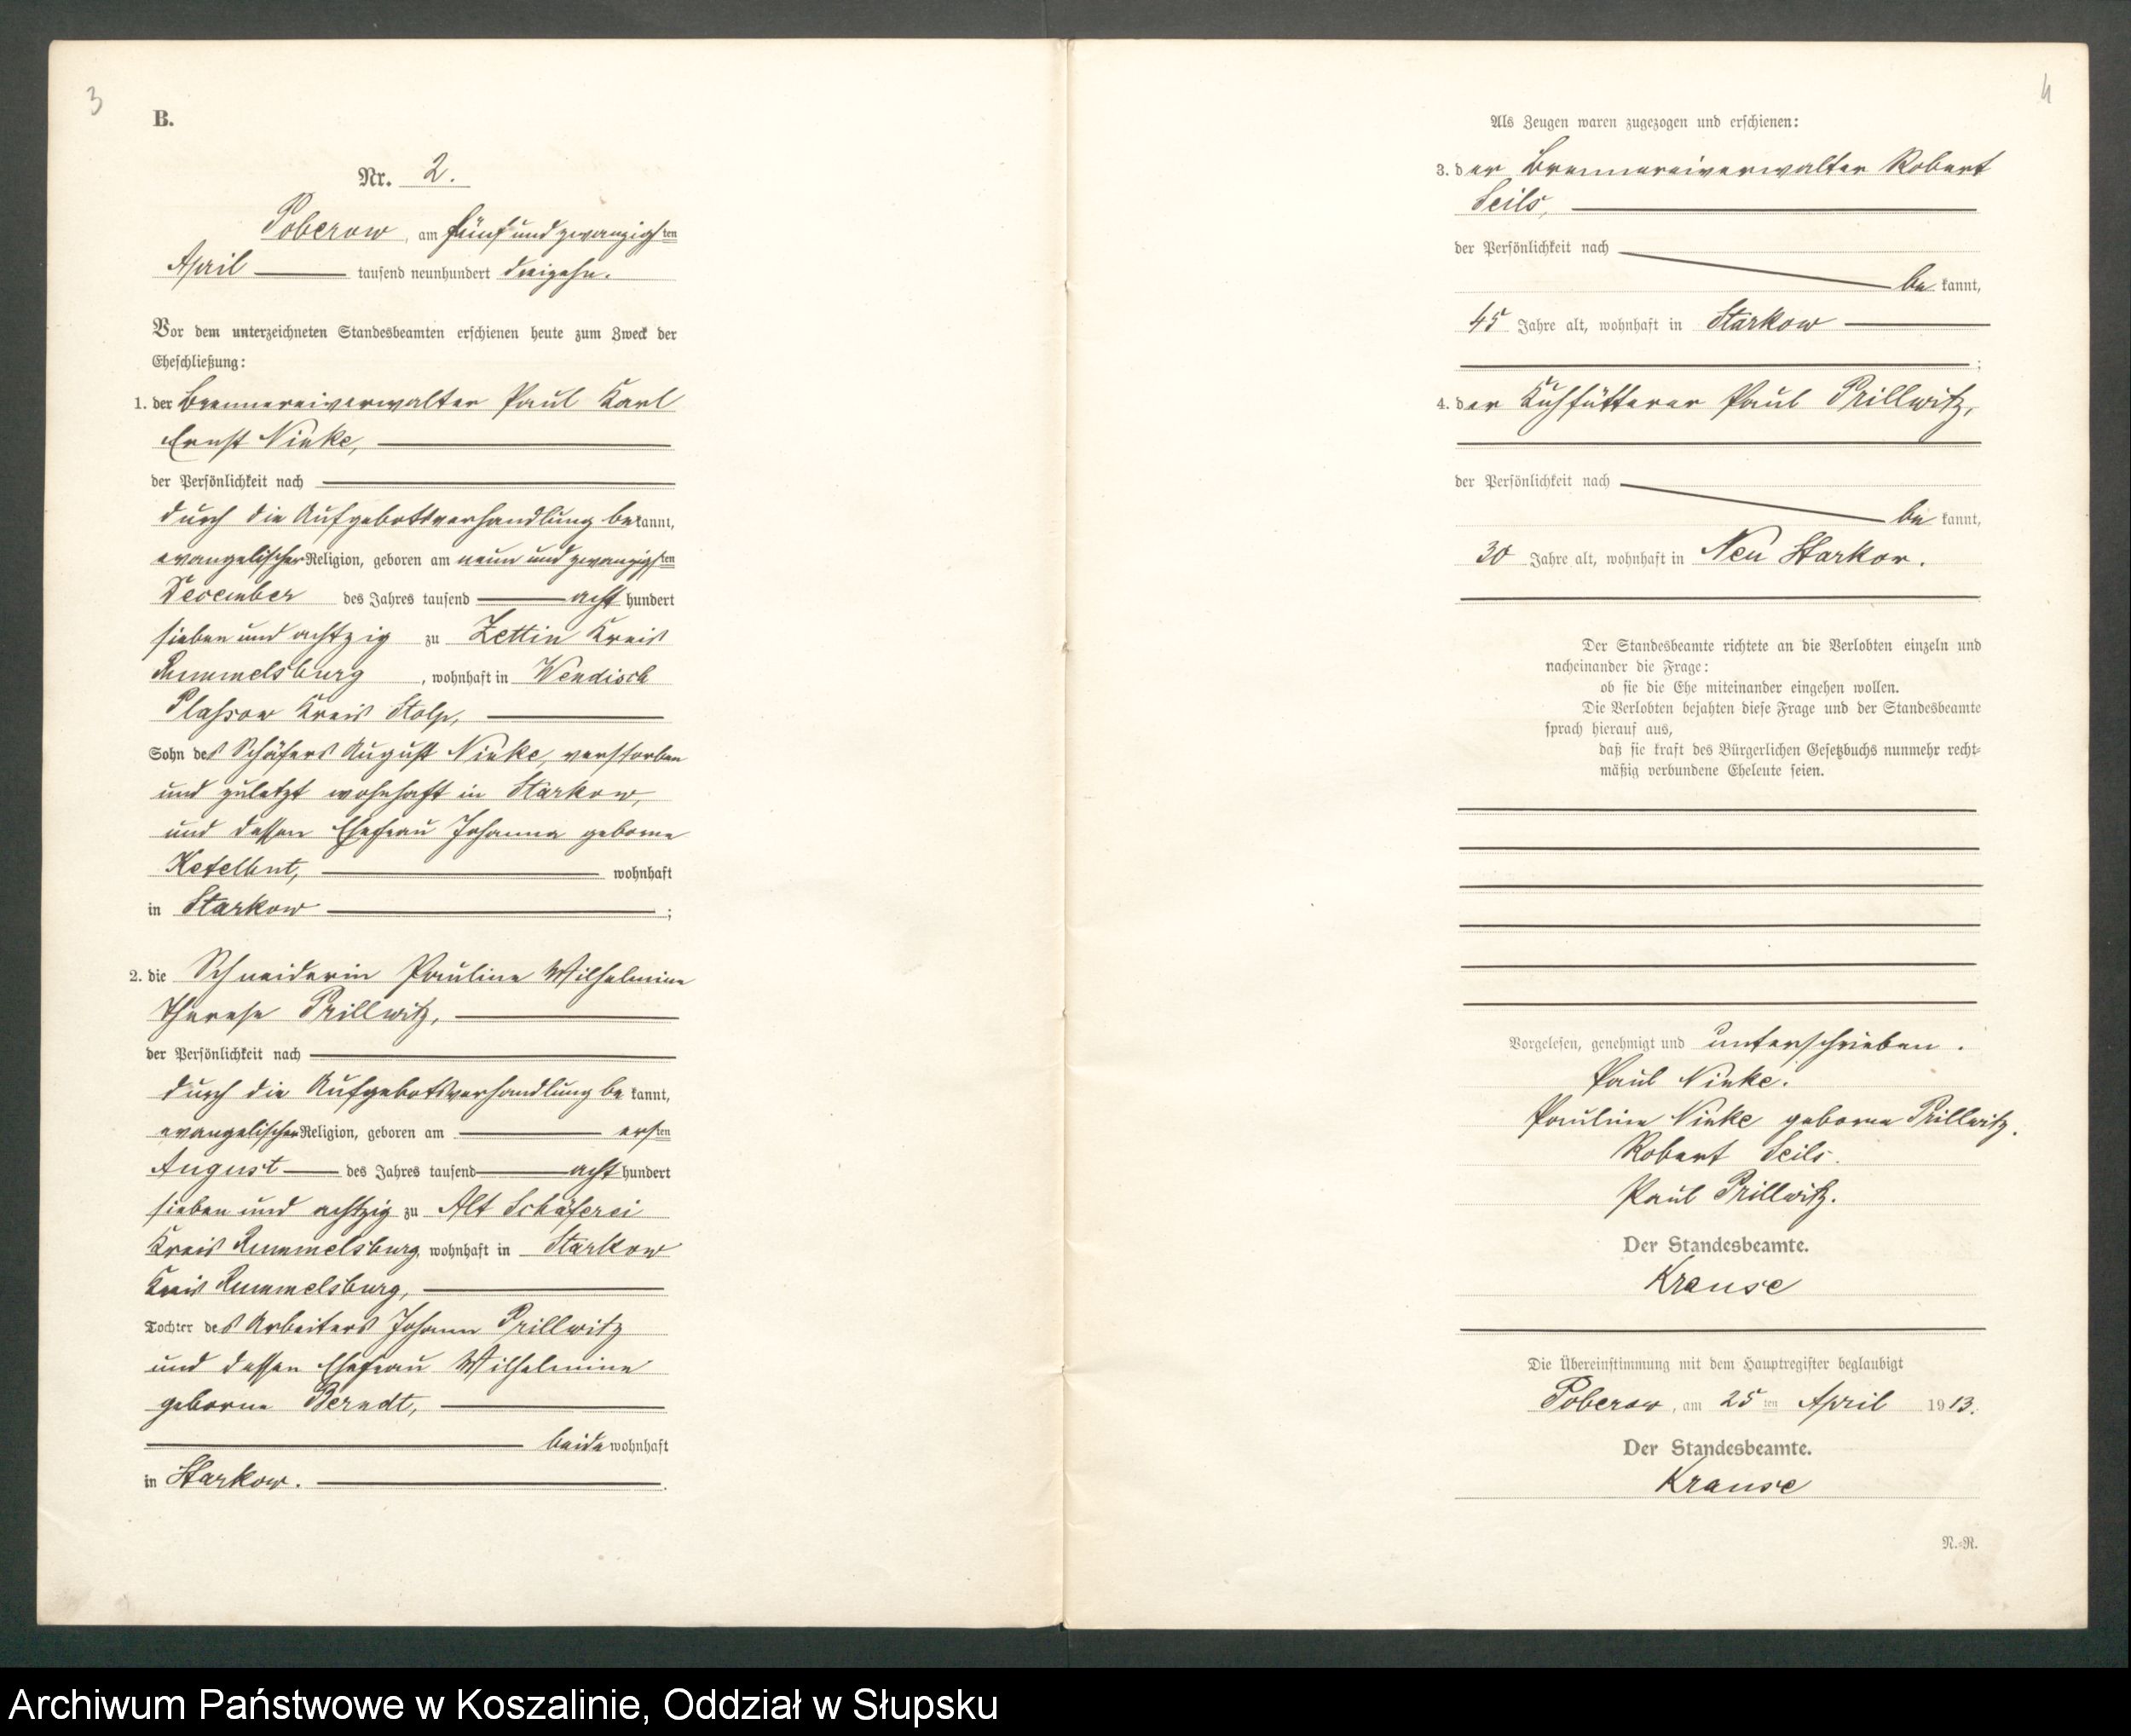 3
B.
Nr. 2.
Poberow, am fünf und zwanzigsten
April tausend neunhundert dreizehn.
Vor dem unterzeichneten Standesbeamten erschienen heute zum Zweck der
Eheschließung:
1. der Brennereiverwalter Paul Karl
Ernst Ninke,
der Persönlichkeit nach
durch die Aufgebotsverhandlung bekannt,
evangelischer Religion, geboren am neun und zwanzigsten
Dezember des Jahres tausend acht hundert
sieben und achtzig zu Zettin Kreis
Rummelsburg, wohnhaft in Wendisch
Plassow Kreis Stolp,
Sohn des Schäfers August Ninke, verstorben
und zuletzt wohnhaft in Starkow,
und dessen Ehefrau Johanna geborne
wohnhaft
in Starkow ;
2. die Schneiderin Pauline Wilhelmine
Therese Prillwitz,
der Persönlichkeit nach
durch die Aufgebotsverhandlung bekannt,
evangelischer Religion, geboren am ersten
August des Jahres tausend acht hundert
sieben und achtzig zu Alt Schäferei
Kreis Rummelsburg, wohnhaft in Starkow
Kreis Rummelsburg,
Tochter des Arbeiters Johann Prillwitz
und dessen Ehefrau Wilhelmine
geborne Berndt,
beide wohnhaft
in Starkow.
4
Als Zeugen waren zugezogen und erschienen:
3. der Brennereiverwalter Robert
Seils,
der Persönlichkeit nach
bekannt,
45 Jahre alt, wohnhaft in Starkow
;
4. der Kuhfütterer Paul Prillwitz,
der Persönlichkeit nach
bekannt,
30 Jahre alt, wohnhaft in Neu Starkow.
Der Standesbeamte richtete an die Verlobten einzeln und
nacheinander die Frage:
ob sie die Ehe miteinander eingehen wollen.
Die Verlobten bejahten diese Frage und der Standesbeamte
sprach hierauf aus,
daß sie kraft des Bürgerlichen Gesetzbuchs nunmehr recht-
mäßig verbundene Eheleute seien.
Vorgelesen, genehmigt und unterschrieben.
Paul Ninke.
Pauline Ninke geborne Prillwitz.
Robert Seils.
Paul Prillwitz.
Der Standesbeamte.
Krause
Die Übereinstimmung mit dem Hauptregister beglaubigt
Poberow, am 25ten April 1913.
Der Standesbeamte.
Krause
N.-R.
Archiwum Państwowe w Koszalinie, Oddział w Słupsku